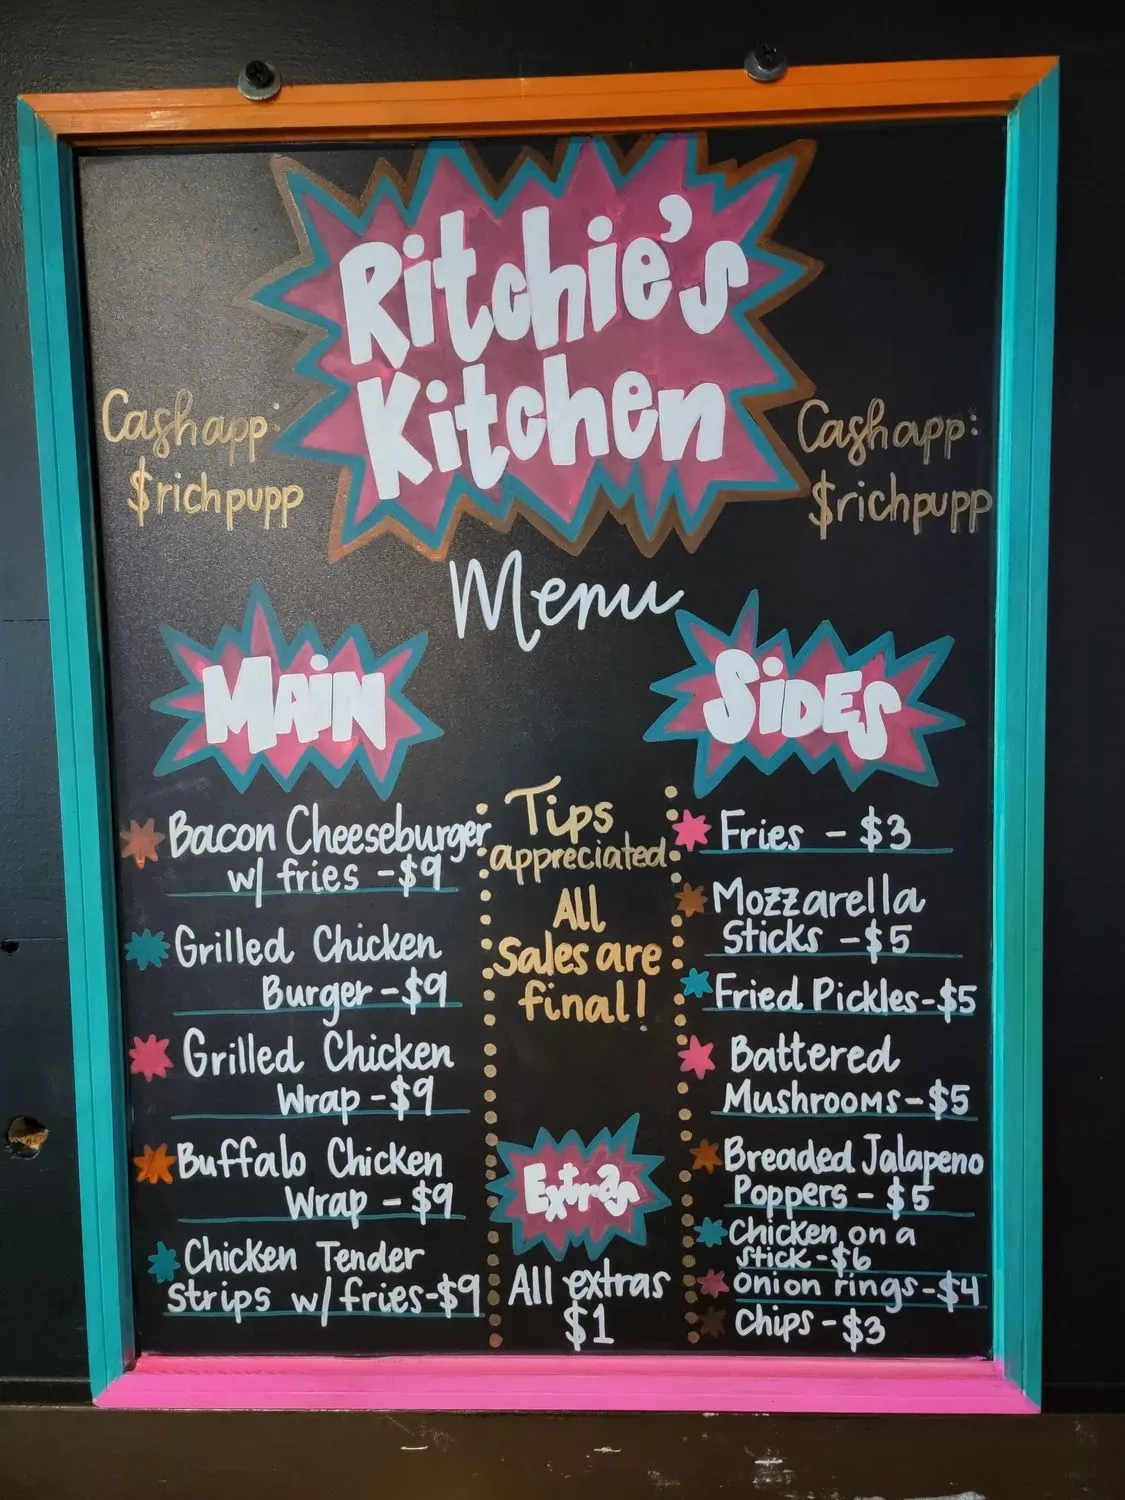 Ritchie's
Kitchen
Cashapp:
$richpupp
Cashapp:
$richpupp
Menu
Main
Bacon Cheeseburger
w/ fries - $9
Grilled Chicken
Burger - $9
Grilled Chicken
Wrap - $9
Buffalo Chicken
Wrap - $9
Chicken Tender
Strips w/ fries - $9
Tips
appreciated
All
Sales are
final!
Extras
All extras
$1
Sides
Fries - $3
Mozzarella
Sticks - $5
Fried Pickles - $5
Battered
Mushrooms - $5
Breaded Jalapeno
Poppers - $5
Chicken on a
stick - $6
Onion rings - $4
Chips - $3